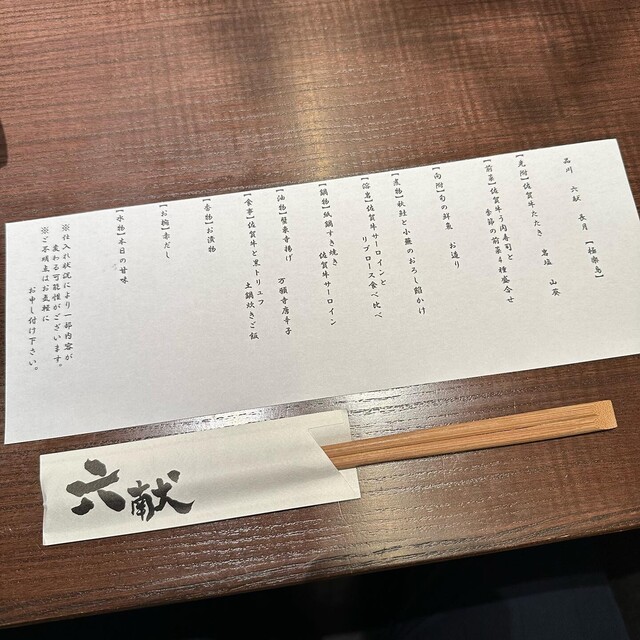 品川 六献 長月 【極楽鳥】
【先附】佐賀牛たたき 岩塩 山葵
【前菜】佐賀牛うに肉寿司と
季節の前菜4種盛合せ
【向附】旬の鮮魚 お造り
【煮物】秋鮭と小蕪のおろし餡かけ
【溶岩】佐賀牛サーロインと
リブロース食べ比べ
【鍋物】紙鍋すき焼き
佐賀牛サーロイン
【油物】蟹東寺揚げ 万願寺唐辛子
【食事】佐賀牛と黒トリュフ
土鍋炊きご飯
【香物】お漬物
【お椀】赤だし
【水物】本日の甘味
※仕入れ状況により一部内容が
変わる可能性がございます。
※ご不明点はお気軽に
お申し付け下さい。
六献